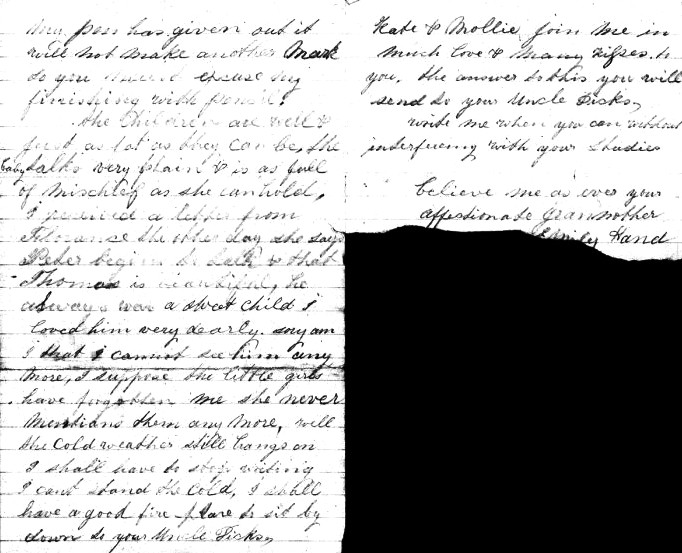 my pen has given out it
will not make another Mark
so you must excuse my
finishing with pencil!
The Children are well &
just as fat as they can be, the
baby talks very plain & is as full
of mischief as she can hold,
I received a letter from
Florance the other day she says
Peter begins to talk & that
Thomas is beautiful, he
always was a sweet child I
loved him very dearly. sorry am
I that I cannot see him any
more, I suppose the little girls
have forgotten me she never
mentions them any more, well
the cold weather still hangs on
I shall have to stop writing
I cant stand the cold, I shall
have a good fire place to sit by
down to your Uncle Fisks,
Kate & Mollie join me in
much love & many kisses to
you, the answer to this you will
send to your Uncle Fisks,
write me when you can without
interfering with your studies
believe me as ever your
affestionate Granmother
Emily Hand